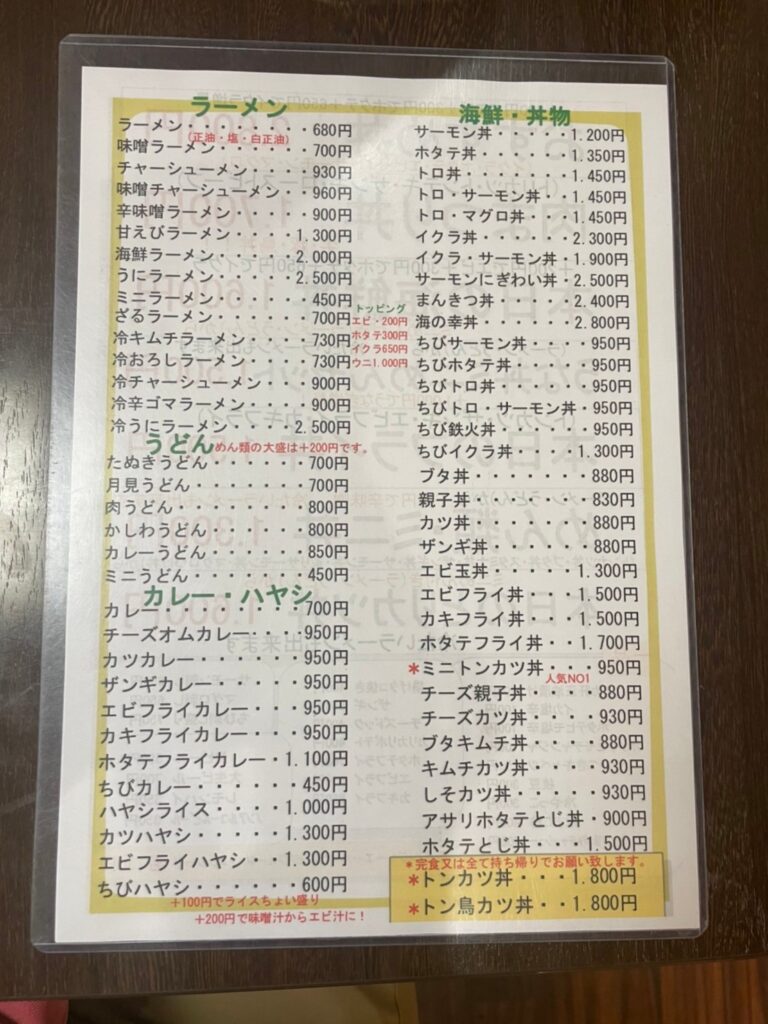 ラーメン
ラーメン・・・・・・・・680円
(正油・塩・白正油)
味噌ラーメン・・・・・・700円
チャーシューメン・・・・930円
味噌チャーシューメン・・960円
辛味噌ラーメン・・・・・900円
甘えびラーメン・・・・1,300円
海鮮ラーメン・・・・・2.000円
うにラーメン・・・・・2.500円
ミニラーメン・・・・・・450円
ざるラーメン・・・・・・700円
冷キムチラーメン・・・・730円
冷おろしラーメン・・・・730円
冷チャーシューメン・・・900円
冷辛ゴマラーメン・・・・900円
冷うにラーメン・・・・2.500円
トッピング
エビ・200円
ホタテ300円
イクラ650円
ウニ1.000円
うどん めん類の大盛は+200円です。
たぬきうどん・・・・・・700円
月見うどん・・・・・・・700円
肉うどん・・・・・・・・800円
かしわうどん・・・・・・800円
カレーうどん・・・・・・850円
ミニうどん・・・・・・・450円
カレー・ハヤシ
カレー・・・・・・・・・700円
チーズオムカレー・・・・950円
カツカレー・・・・・・・950円
ザンギカレー・・・・・・950円
エビフライカレー・・・・950円
カキフライカレー・・・・950円
ホタテフライカレー・1.100円
ちびカレー・・・・・・・450円
ハヤシライス・・・・・1.000円
カツハヤシ・・・・・・1.300円
エビフライハヤシ・・・1.300円
ちびハヤシ・・・・・・・600円
+100円でライスちょい盛り
+200円で味噌汁からエビ汁に!
海鮮・丼物
サーモン丼・・・・・1.200円
ホタテ丼・・・・・・1.350円
トロ丼・・・・・・・1.450円
トロ・サーモン丼・・1.450円
トロ・マグロ丼・・・1.450円
イクラ丼・・・・・・2.300円
イクラ・サーモン丼・1.900円
サーモンにぎわい丼・2.500円
まんきつ丼・・・・・2.400円
海の幸丼・・・・・・2.800円
ちびサーモン丼・・・・950円
ちびホタテ丼・・・・・950円
ちびトロ丼・・・・・・950円
ちびトロ・サーモン丼・950円
ちび鉄火丼・・・・・・950円
ちびイクラ丼・・・・1.300円
ブタ丼・・・・・・・・880円
親子丼・・・・・・・・830円
カツ丼・・・・・・・・880円
ザンギ丼・・・・・・・880円
エビ玉丼・・・・・・1.300円
エビフライ丼・・・・1.500円
カキフライ丼・・・・1.500円
ホタテフライ丼・・・1.700円
*ミニトンカツ丼・・・950円
人気NO1
チーズ親子丼・・・・・880円
チーズカツ丼・・・・・930円
ブタキムチ丼・・・・・880円
キムチカツ丼・・・・・930円
しそカツ丼・・・・・・930円
アサリホタテとじ丼・・900円
ホタテとじ丼・・・・1.500円
*完食又は全て持ち帰りでお願い致します。
*トンカツ丼・・・1.800円
*トン鳥カツ丼・・1.800円